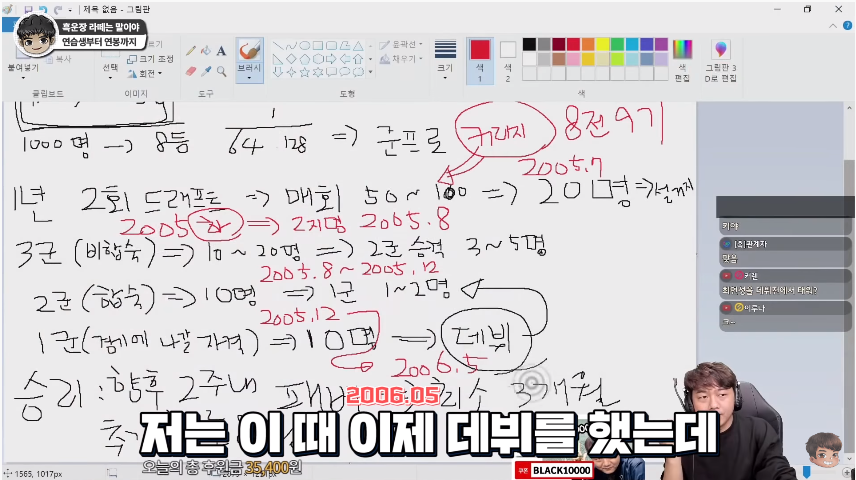 제목 없음 - 그림판
흑운장 라떼는 말아야
연습생부터 연봉까지
붙여넣기
복사
선택
자르기
크기 조정
회전
브러시
윤곽선
채우기
크기
색
1
색
2
색
편집
그림판 3
D로 편집
클립보드
이미지
도구
도형
색
1000명 → 8등 1/64 .128 ⇒ 준프로 커리지 8전 9기
2005.7
1년 2회 드래프트 ⇒ 매회 50~100 ⇒ 20명 ⇒
2005 하 ⇒ 2차지명 2005.8
3군 (비합숙) ⇒ 10~20명 ⇒ 2군 승격 3~5명
2005.8~2005.12
2군 (합숙) ⇒ 10명 ⇒ 1군 1~2명
2005.12
1군 (경기에 나갈 자격) ⇒ 10명 ⇒ 데뷔
2006.5
승리 : 향후 2주내
최소 3개월
2006.05
저는 이 때 이제 데뷔를 했는데
키야
[축]관계자
맞음
카렌
최연성을 데뷔전에서 태워?
이루나
ㅋ~
1565, 1017px
오늘의 총 후원금 35,400원
쿠폰 BLACK10000